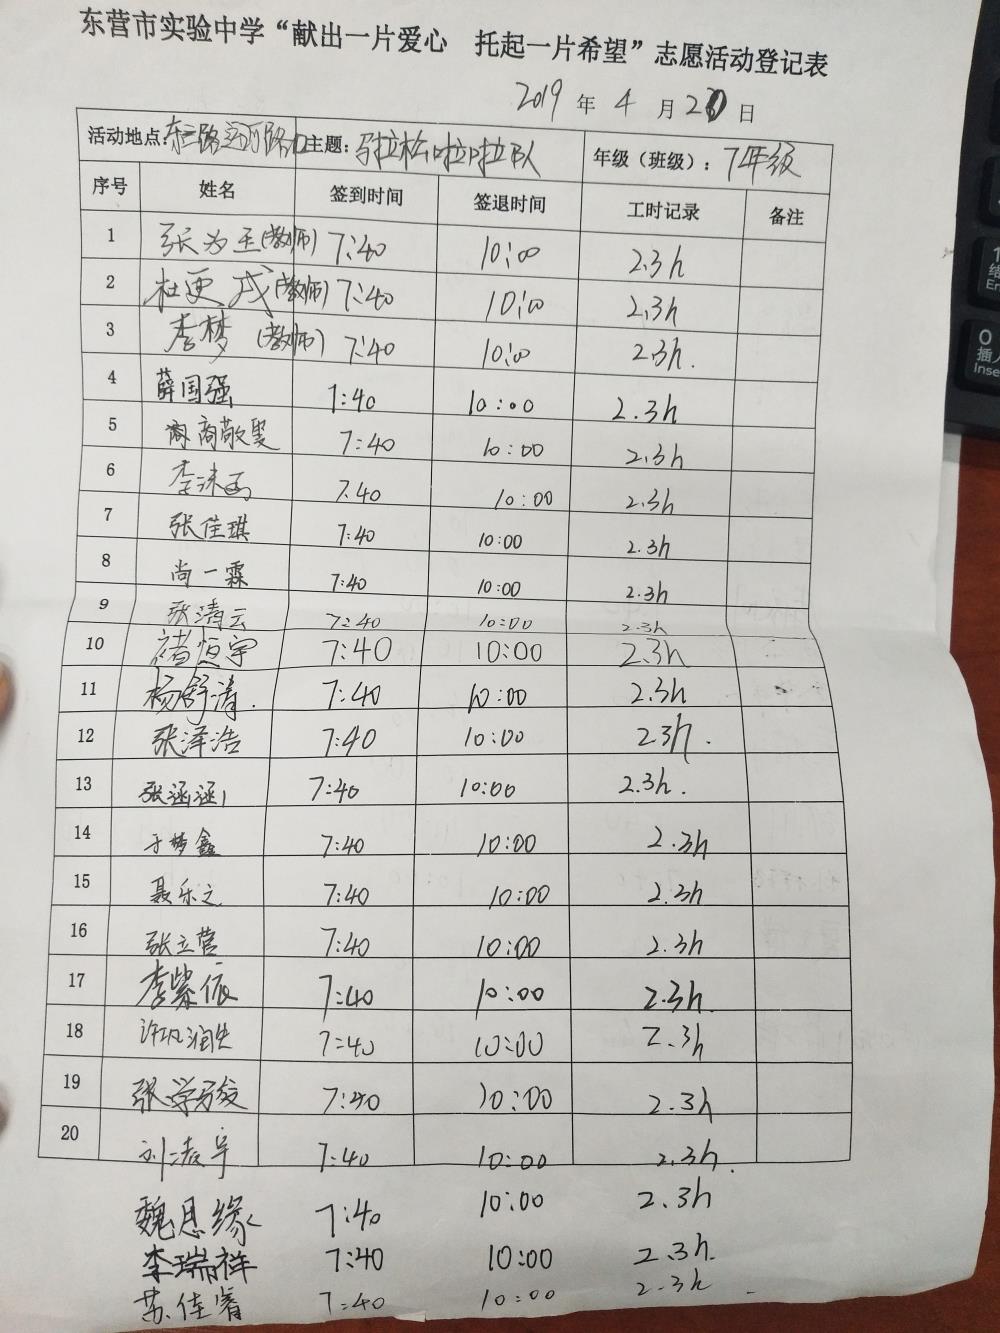 东营市实验中学“献出一片爱心 托起一片希望”志愿活动登记表
2019 年 4 月 20 日
活动地点:东三路运河路口 主题:马拉松啦啦队 年级(班级):7年级
序号 姓名 签到时间 签退时间 工时记录 备注
1 张为玉(教师) 7:40 10:00 2.3h
2 杜更成(教师) 7:40 10:00 2.3h
3 李梦(教师) 7:40 10:00 2.3h.
4 薛国强 7:40 10:00 2.3h
5 商敬旻 7:40 10:00 2.3h
6 李沫 7:40 10:00 2.3h
7 张佳琪 7:40 10:00 2.3h
8 尚一霖 7:40 10:00 2.3h
9 张清云 7:40 10:00 2.3h
10 褚恒宇 7:40 10:00 2.3h
11 杨舒清. 7:40 10:00 2.3h
12 张泽浩 7:40 10:00 2.3h.
13 张涵涵 7:40 10:00 2.3h.
14 于梦鑫 7:40 10:00 2.3h
15 聂乐之 7:40 10:00 2.3h
16 张立营 7:40 10:00 2.3h
17 李紫依 7:40 10:00 2.3h
18 许巩润 7:40 10:00 2.3h
19 张学骏 7:40 10:00 2.3h
20 刘凌宇 7:40 10:00 2.3h.
魏思缘 7:40 10:00 2.3h
李瑞祥 7:40 10:00 2.3h.
苏佳睿 7:40 10:00 2.3h
0
Inse